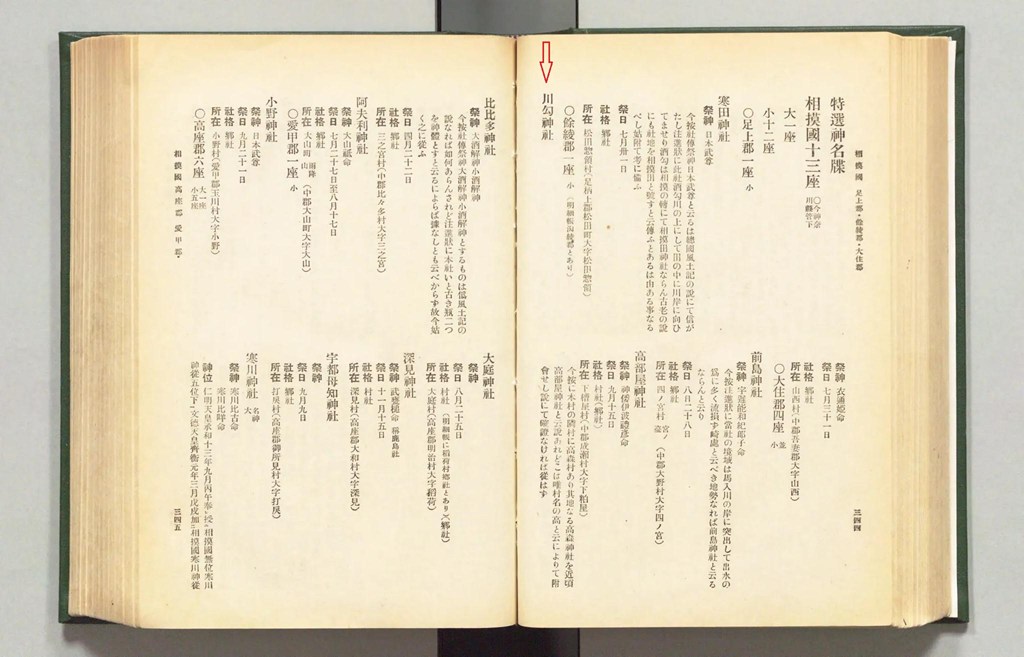 相摸國 足上郡・餘綾郡・大住郡
特選神名牒
相摸國十三座 〇今神奈川縣管下
大一座
小十二座
〇足上郡一座 小
寒田神社
祭神 日本武尊
今按社傳祭神日本武尊と云るは總國風土記の說にて信が
たし注進狀に此社酒匂川の上にして田の中に川岸に向ひ
てませり酒匂は相摸の轉にて相摸田神社ならん古老の說
にも社地を相摸田と號すと云傳ふとあるは由ある事なる
べし姑附て考に備ふ
祭日 七月卅一日
社格 鄕社
所在 松田惣領村(足柄上郡松田町大字松田惣領)
〇餘綾郡一座 小 (明細帳淘綾郡とあり)
川勾神社
祭神 衣通姬命
祭日 七月三十一日
所在 山西村(中郡吾妻郡大字山西)
〇大住郡四座 並小
前鳥神社
祭神 宇遲能和紀郎子命
今按注進狀に當社の境域は馬入川の岸に突出して出水の
爲に多く流損す崎處と云べき地勢なれば前鳥神社と云る
ならんと云り
祭日 八月二十八日
社格 鄕社
所在 四ノ宮村 宮ノ (中郡大野村大字四ノ宮)
高部屋神社
祭神 神倭伊波禮彥命
祭日 九月十五日
社格 村社(鄕社)
所在 下糟屋村(中郡成瀨村大字下粕屋)
今按に本村の隣村に高森村あり其地なる高森神社を近頃
高部屋神社と云說あれどこは唯村名の高と云によりて附
會せし說にて確證なければ從はず
三四四
比比多神社
祭神 大酒解神小酒解神
今按社傳祭神大酒解神小酒解神とするものは僞風土記の
說なれば如何あらんされど注進狀に本社いと古き瓶二つ
を神體とすと云るによらば據なしとも云べからず故今姑
く之に從ふ
祭日 四月二十二日
社格 鄕社
所在 三之宮村(中郡比々多村大字三之宮)
阿夫利神社
祭神 大山祗命
祭日 七月二十七日至八月十七日
社格 鄕社
所在 大山町 雨降山 (中郡大山町大字大山)
〇愛甲郡一座 小
小野神社
祭神 日本武尊
祭日 九月二十一日
社格 鄕社
所在 小野村(愛甲郡玉川村大字小野)
〇高座郡六座 大一座 小五座
相摸國 高座郡 愛甲郡・
大庭神社
祭日 八月二十五日
社格 村社 (明細帳に稻荷村鄕社とあり)(鄕社)
所在 大庭村(高座郡明治村大字稻荷)
深見神社
祭神 武甕槌命 稱鹿島社
祭日 十一月十五日
社格 村社
所在 深見村(高座郡大和村大字深見)
宇都母知神社
祭神
祭日 九月九日
社格 鄕社
所在 打戾村(高座郡御所見村大字打戾)
寒川神社 名神大
祭神 寒川比古命
寒川比咩命
神位 仁明天皇承和十三年九月丙午奉授相摸國無位寒川
神從五位下文德天皇齊衡元年三月戊戌加相摸國寒川神從
三四五